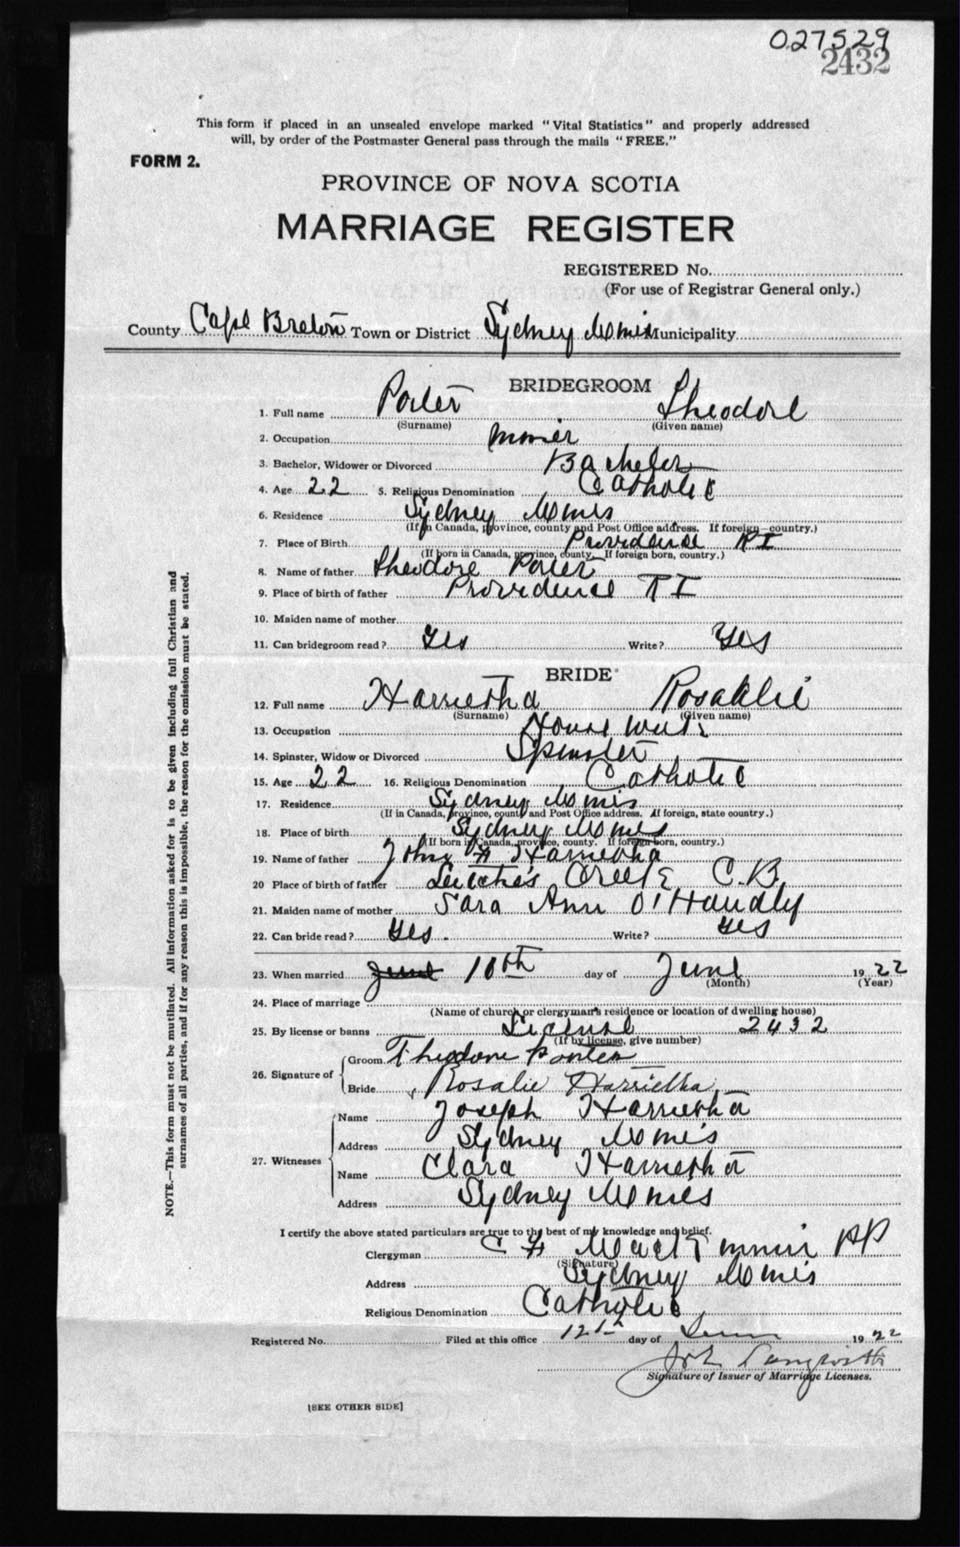 027529
2432
This form if placed in an unsealed envelope marked "Vital Statistics" and properly addressed
will, by order of the Postmaster General pass through the mails "FREE."
FORM 2.
PROVINCE OF NOVA SCOTIA
MARRIAGE REGISTER
REGISTERED No.
(For use of Registrar General only.)
County Cape Breton Town or District Sydney Mines Municipality
BRIDEGROOM
1. Full name Porter Theodore
(Surname) (Given name)
2. Occupation miner
3. Bachelor, Widower or Divorced Bachelor
4. Age 22 5. Religious Denomination Catholic
6. Residence Sydney Mines
(If in Canada, province, county and Post Office address. If foreign—country.)
7. Place of Birth Providence RI
(If born in Canada, province, county. If foreign born, country.)
8. Name of father Theodore Porter
9. Place of birth of father Providence RI
10. Maiden name of mother
11. Can bridegroom read? Yes Write? Yes
BRIDE
12. Full name Harrietha
(Surname) (Given name)
13. Occupation House work
14. Spinster, Widow or Divorced Spinster
15. Age 22 16. Religious Denomination Catholic
17. Residence Sydney Mines
(If in Canada, province, county and Post Office address. If foreign, state country.)
18. Place of birth Sydney Mines
(If born in Canada, province, county. If foreign born, country.)
19. Name of father John Harrietha
20 Place of birth of father Leitches Creek C.B.
21. Maiden name of mother Sara Ann O'Handly
22. Can bride read? Yes. Write? Yes
23. When married June 10th day of June 1922
(Month) (Year)
24. Place of marriage
(Name of church or clergyman's residence or location of dwelling house)
25. By license or banns License 2432
(If by license, give number)
26. Signature of
Groom Theodore Porter
Bride Rosalie Harrietha
27. Witnesses
Name Joseph Harrietha
Address Sydney Mines
Name Clara Harrietha
Address Sydney Mines
I certify the above stated particulars are true to the best of my knowledge and belief.
Clergyman C F MacKinnon PP
(Signature)
Address Sydney Mines
Religious Denomination Catholic
Registered No. Filed at this office 12th day of June 1922
Signature of Issuer of Marriage Licenses.
[SEE OTHER SIDE]
NOTE.—This form must not be mutilated. All information asked for is to be given including full Christian and
surnames of all parties, and if for any reason this is impossible, the reason for the omission must be stated.